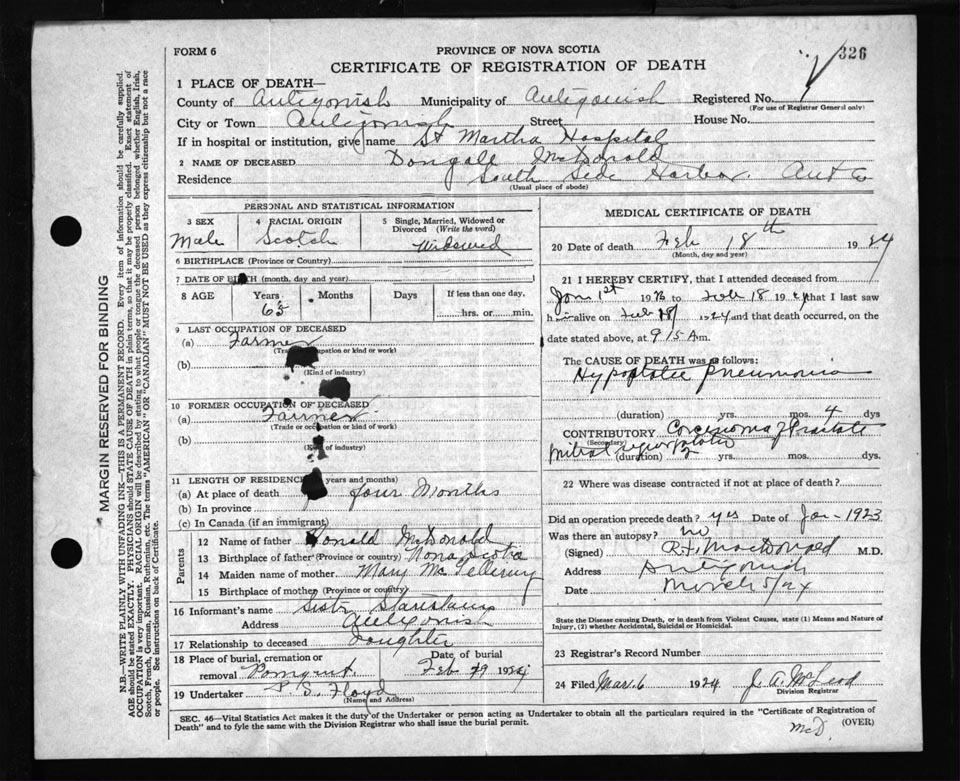 FORM 6
PROVINCE OF NOVA SCOTIA
326
CERTIFICATE OF REGISTRATION OF DEATH
1 PLACE OF DEATH—
County of Antigonish Municipality of Antigonish Registered No.
(For use of Registrar General only)
City or Town Antigonish Street House No.
If in hospital or institution, give name St Martha Hospital
2 NAME OF DECEASED Dongall McDonald
Residence South Side Harbor. Ant Co
(Usual place of abode)
PERSONAL AND STATISTICAL INFORMATION
3 SEX
Male
4 RACIAL ORIGIN
Scotch
5 Single, Married, Widowed or Divorced (Write the word)
Widowed
6 BIRTHPLACE (Province or Country)
7 DATE OF BIRTH (month, day and year)
8 AGE
Years
65
Months
Days
If less than one day,
hrs. or min.
9 LAST OCCUPATION OF DECEASED
(a) Farmer
(Trade occupation or kind or work)
(b)
(Kind of industry)
10 FORMER OCCUPATION OF DECEASED
(a) Farmer
(Trade or occupation or kind of work)
(b)
(Kind of industry)
11 LENGTH OF RESIDENCE (in years and months)
(a) At place of death four Months
(b) In province
(c) In Canada (if an immigrant)
Parents
12 Name of father Donald McDonald
13 Birthplace of father (Province or country) Nova Scotia
14 Maiden name of mother Mary
15 Birthplace of mother (Province or country)
16 Informant's name Sister Stanislaus
Address Antigonish
17 Relationship to deceased Daughter
18 Place of burial, cremation or removal Pomquet.
Date of burial
Feb 19 1924
19 Undertaker Floyd
(Name and Address)
MEDICAL CERTIFICATE OF DEATH
20 Date of death Feb 18th 1924
(Month, day and year)
21 I HEREBY CERTIFY, that I attended deceased from
Jan 1st 19 to Feb 18 1924 that I last saw
him alive on Feb 18/ 1924 and that death occurred, on the
date stated above, at 9 15 A.m.
The CAUSE OF DEATH was as follows:
Hypostatic Pneumonia
(duration) yrs. mos. 4 dys
CONTRIBUTORY Carcinoma of Prostate
(Secondary)
mitral
(duration) yrs. mos. dys.
22 Where was disease contracted if not at place of death?
Did an operation precede death? yes Date of Jan - 1923
Was there an autopsy? no
(Signed) R.F. MacDonald M.D.
Address Antigonish
Date March 5/24
State the Disease causing Death, or in death from Violent Causes, state (1) Means and Nature of
Injury, (2) whether Accidental, Suicidal or Homicidal.
23 Registrar's Record Number
24 Filed Mar. 6 1924 J. A. McLeod
Division Registrar
SEC. 46—Vital Statistics Act makes it the duty of the Undertaker or person acting as Undertaker to obtain all the particulars required in the "Certificate of Registration of
Death" and to fyle the same with the Division Registrar who shall issue the burial permit.
(OVER)
McD.
MARGIN RESERVED FOR BINDING
N.B.—WRITE PLAINLY WITH UNFADING INK—THIS IS A PERMANENT RECORD. Every item of information should be carefully supplied.
AGE should be stated EXACTLY. PHYSICIANS should STATE CAUSE OF DEATH in plain terms, so that it may be properly classified. Exact statement of
OCCUPATION is very important. RACIAL ORIGIN will be described by stating to what people or tongue the deceased person belonged whether English, Irish,
Scotch, French, German, Russian, Ruthenian, etc. The terms "AMERICAN" OR "CANADIAN" MUST NOT BE USED as they express citizenship but not a race
or people. See instructions on back of Certificate.